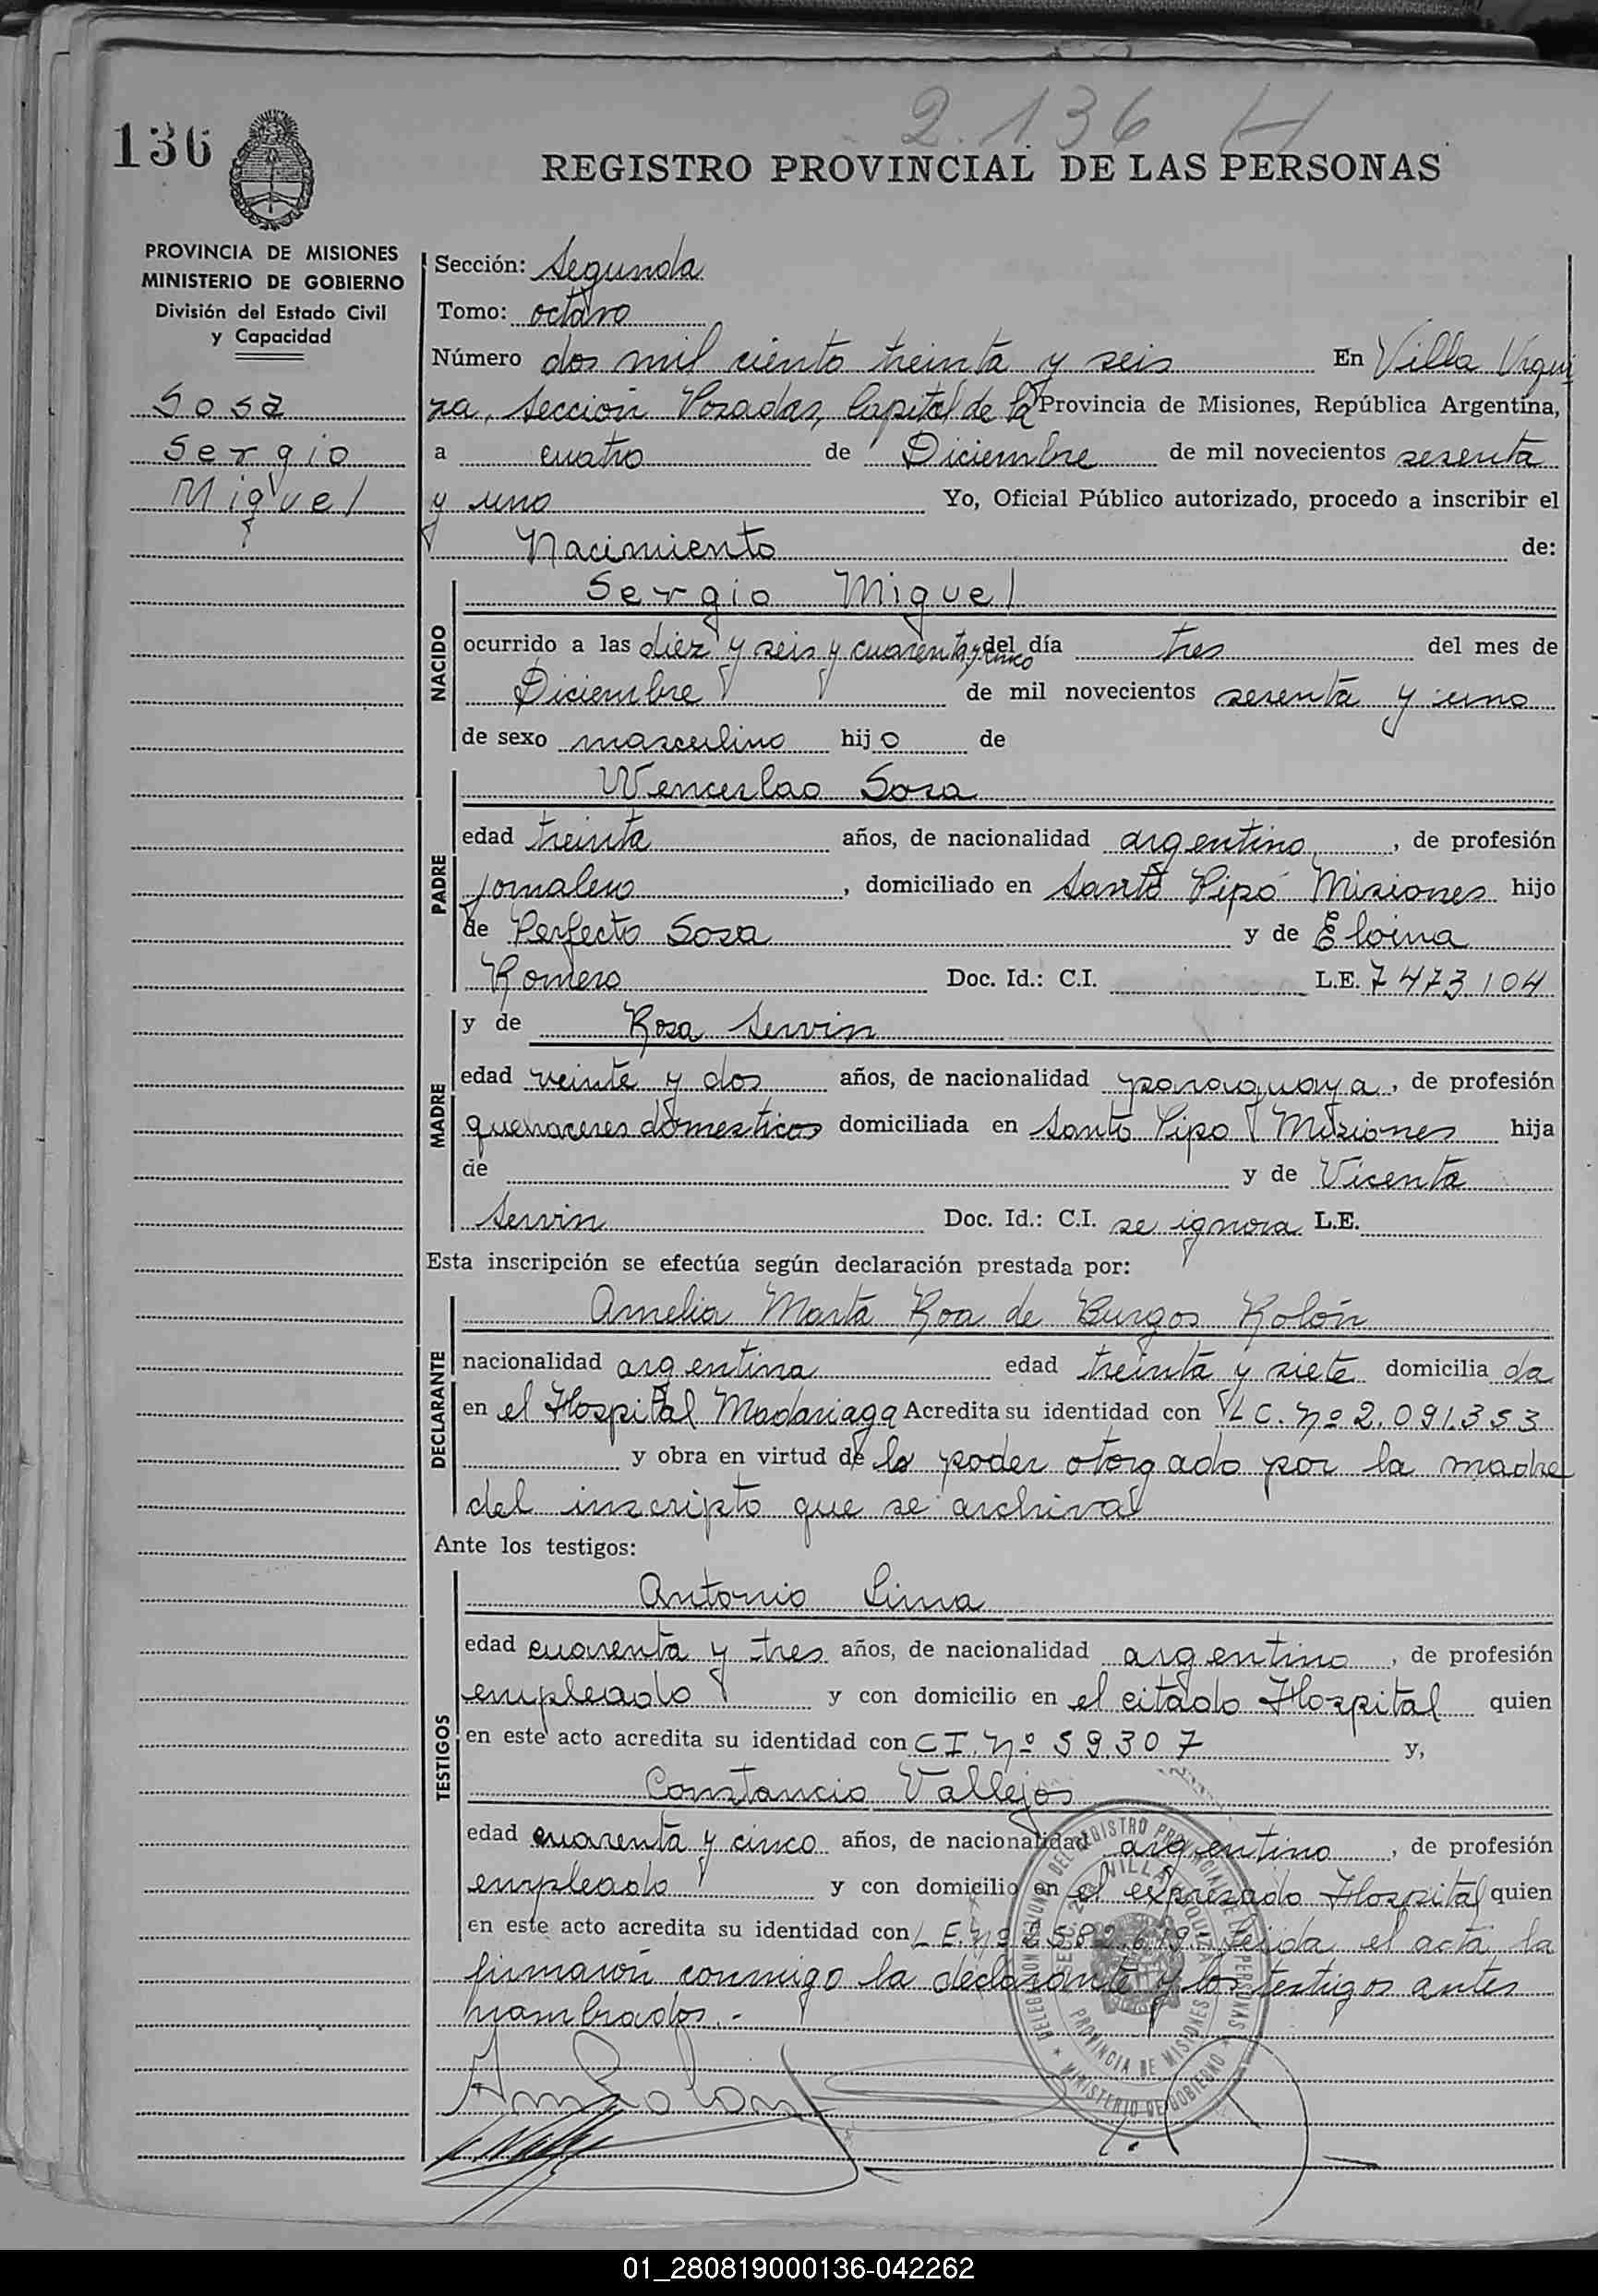 2.136 H
136
REGISTRO PROVINCIAL DE LAS PERSONAS
PROVINCIA DE MISIONES
MINISTERIO DE GOBIERNO
División del Estado Civil
y Capacidad
Sosa
Sergio
Miguel
Sección: Segunda
Tomo: octavo
Número dos mil ciento treinta y seis En Villa Urqui
za, Sección Posadas, Capital de la Provincia de Misiones, República Argentina,
a cuatro de Diciembre de mil novecientos sesenta
y uno Yo, Oficial Público autorizado, procedo a inscribir el
Nacimiento de:
NACIDO
Sergio Miguel
ocurrido a las diez y seis y cuarenta y cinco del día tres del mes de
Diciembre de mil novecientos sesenta y uno
de sexo masculino hijo de
PADRE
Wenceslao Sosa
edad treinta años, de nacionalidad argentino, de profesión
jornalero, domiciliado en Santo Pipó Misiones hijo
de Perfecto Sosa y de Eloina
Romero Doc. Id.: C.I. L.E. 7473104
MADRE
y de Rosa Servin
edad veinte y dos años, de nacionalidad paraguaya, de profesión
quehaceres domesticos domiciliada en Santo Pipo Misiones hija
de y de Vicenta
Servin Doc. Id.: C.I. se ignora L.E.
Esta inscripción se efectúa según declaración prestada por:
DECLARANTE
Amelia Marta Roa de Burgos Rolón
nacionalidad argentina edad treinta y siete domicilia da
en el Hospital Madariaga Acredita su identidad con L C. Nº 2.091.353
y obra en virtud de poder otorgado por la madre
del inscripto que se archiva
Ante los testigos:
TESTIGOS
Antonio Lima
edad cuarenta y tres años, de nacionalidad argentino, de profesión
empleado y con domicilio en el citado Hospital quien
en este acto acredita su identidad con C I. Nº 59.307 y,
Constancio Vallejos
edad cuarenta y cinco años, de nacionalidad argentino, de profesión
empleado y con domicilio en el expresado Hospital quien
en este acto acredita su identidad con L E. Nº leida el acta, la
firmaron conmigo la declarante y los testigos antes
nombrados.-
DEL REGISTRO PROVINCIAL DE LAS PERSONAS
VILLA URQUIZA
PROVINCIA DE MISIONES
* MINISTERIO DE GOBIERNO *
01_280819000136-042262